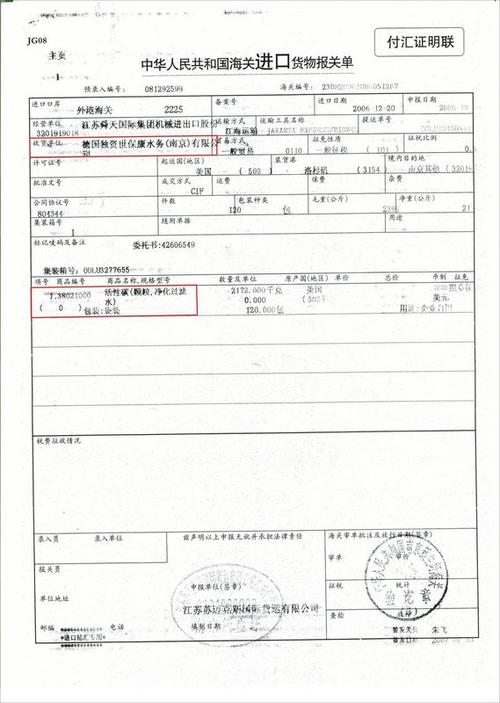 JG08
主页
1
付汇证明联
中华人民共和国海关进口货物报关单
预录入编号: 081292599 海关编号:
进口口岸 备案号 进口日期 申报日期
外港海关 2225 2006-12-20 2006-12
经营单位 江苏舜天国际集团机械进出口股份 运输方式 运输工具名称 提运单号
3201919018 江海运输
收货单位 德国独资世保康水务(南京)有限公 贸易方式 征免性质 征税比例
一般贸易 0110 一般征税 (101)
许可证号 起运国(地区) 装货港 境内目的地
美国 (502) 洛杉矶 (3154) 南京其他
批准文号 成交方式 运费 保费 杂费
CIF
合同协议号 件数 包装种类 毛重(公斤) 净重(公斤)
804344 120 包
集装箱号 随附单据 用途
1
标记唛码及备注 委托书:42606549
集装箱号: OOLU3277655
项号 商品编号 商品名称、规格型号 数量及单位 原产国(地区) 单价 总价 币制 征免
1.38021000 活性碳(颗粒,净化过滤 2172.000千克 美国
( 0) 水) 0.000 (502) 美元
包装:袋装 120.000包 用途:企业自用
税费征收情况
录入员 录入单位 兹声明以上申报无讹并承担法律责任 海关审单批注及放行日期(签章)
报关员 审单 审价
申报单位(签章) 征税 统计
单位地址 江苏苏迈克斯国际货运有限公司
查验 放行
邮编 电话 填制日期
*进口付汇专用* 签发关员 朱飞
签发日期